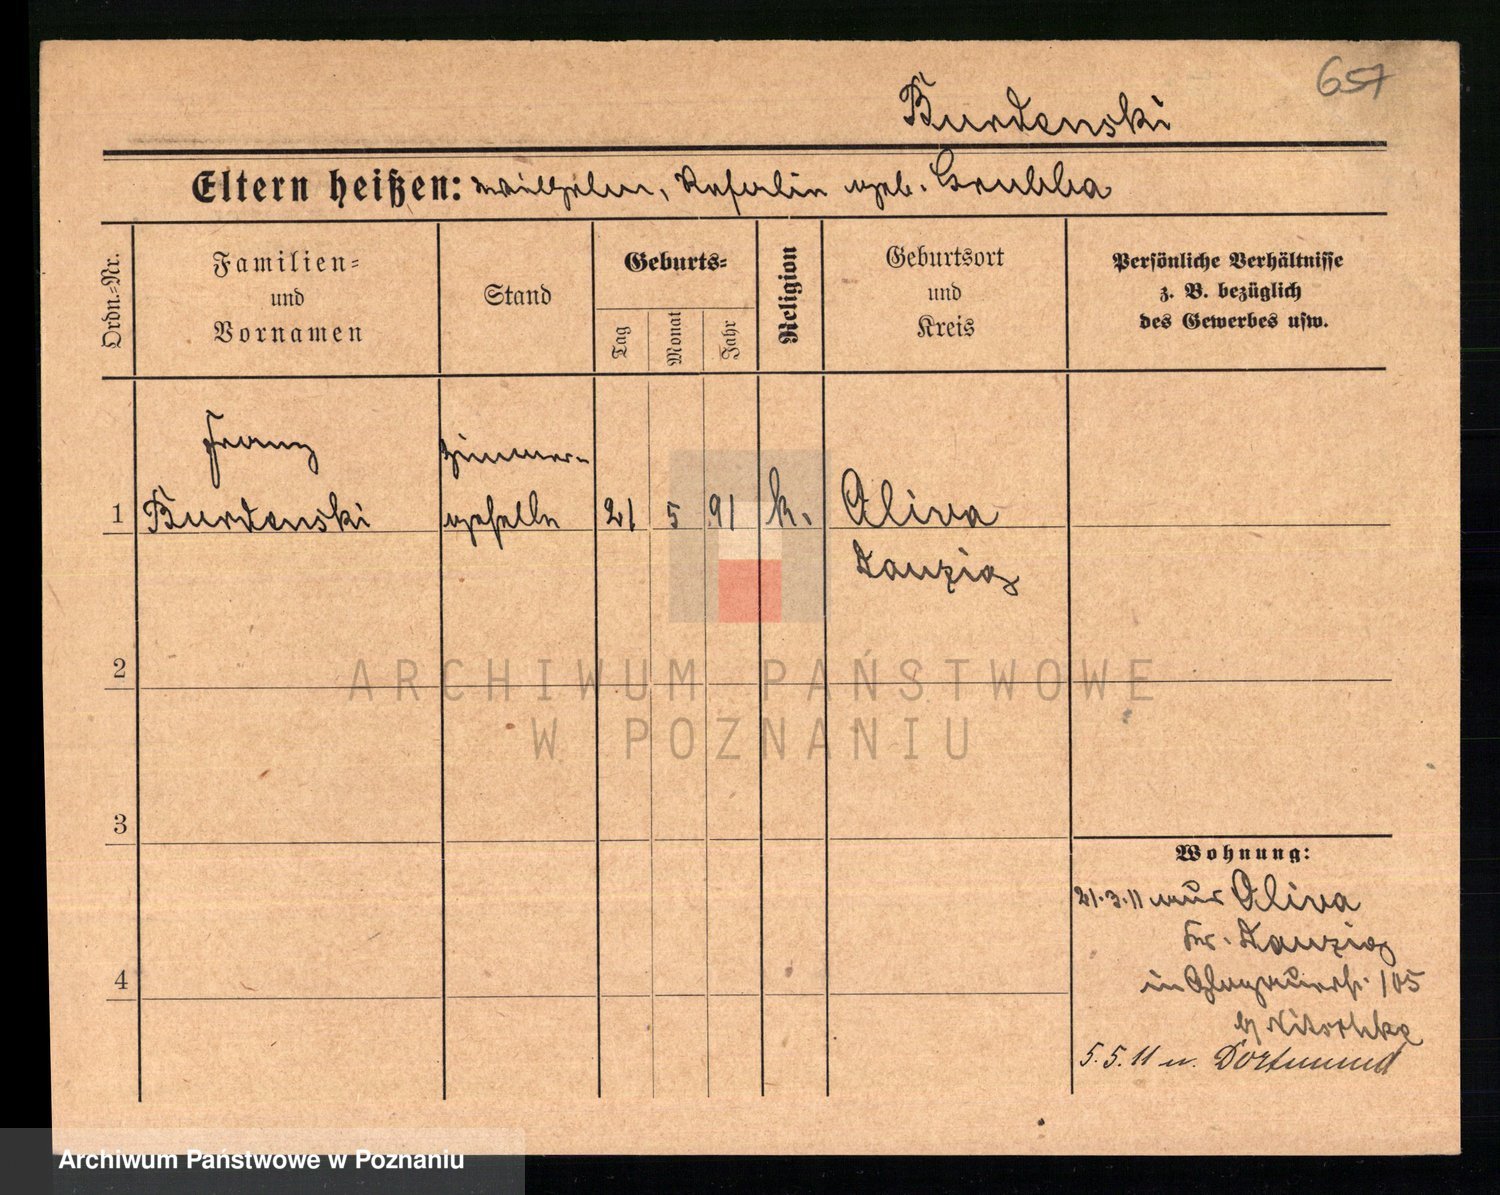 657
Burdenski
Eltern heißen: Wilhelm, Rosalie geb. Grubba
Ordn.-Nr.
Familien-
und
Vornamen
Stand
Geburts-
Tag
Monat
Jahr
Religion
Geburtsort
und
Kreis
Persönliche Verhältnisse
z. B. bezüglich
des Gewerbes usw.
Franz Zimmer-
1 Burdenski geselle 21 5 91 k. Oliva
Danzig
2
ARCHIWUM PAŃSTWOWE
W POZNANIU
3
Wohnung:
21.3.11 aus Oliva
Kr. Danzig
in 105
b/ Nitschke
5.5.11 n. Dortmund
4
Archiwum Państwowe w Poznaniu